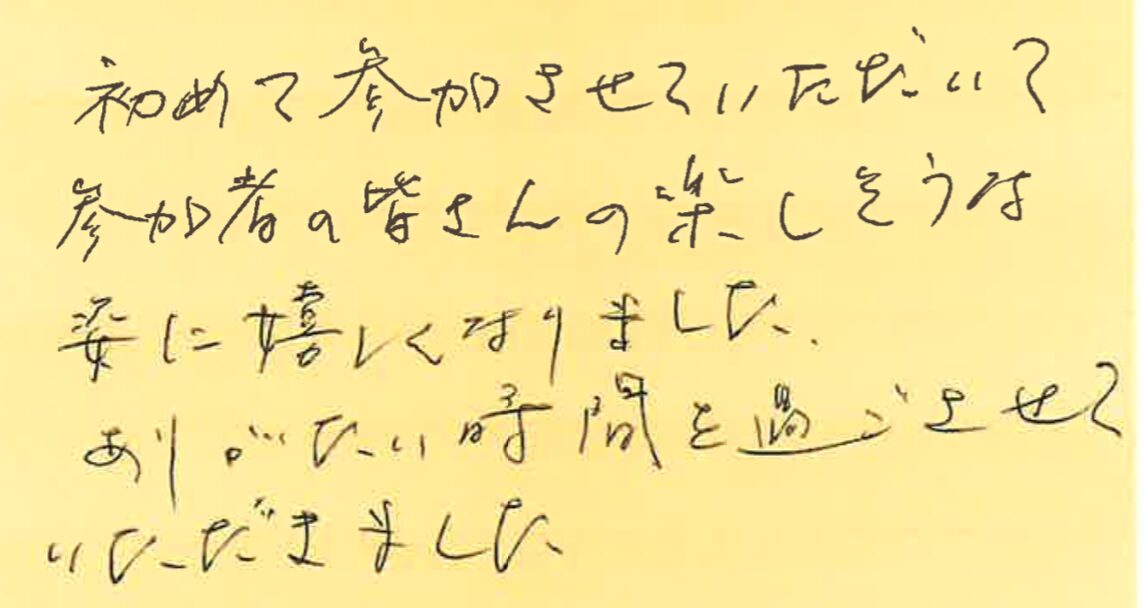 初めて参加させていただいて
参加者の皆さんの楽しそうな
姿に嬉しくなりました。
ありがたい時間を過ごさせて
いただきました